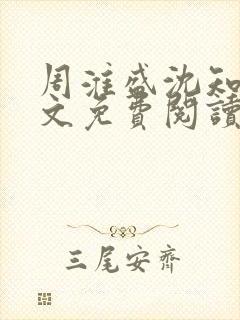 周淮盛沈知
文免費閱讀
三尾安齊